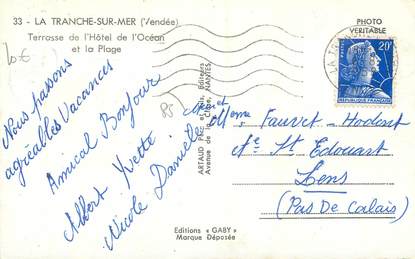 33 - LA TRANCHE-SUR-MER (Vendée)
Terrasse de l'Hôtel de l'Océan
et la Plage
10€
85
Nous passons
agréables Vacances
Amical Bonjour
Albert Yvette
Nicole Danielle
ARTAUD Père
Editeurs
NANTES
PHOTO
VÉRITABLE
20F
REPUBLIQUE FRANÇAISE
LA TRANCHE
Mr et
Mme Fauvet-Hodent
St Edouart
Lens
(Pas De Calais)
Editions « GABY »
Marque Déposée